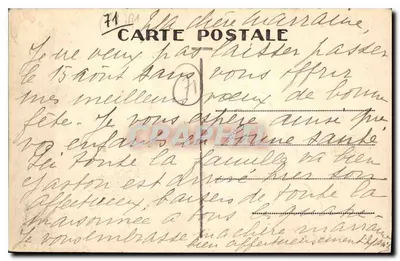 71
Ma chère Marraine,
CARTE POSTALE
Je ne veux pas laisser passer
le 15 Août sans vous offrir
mes meilleurs voeux de bonne
fête. Je vous espère ainsi que
vos enfants en bonne santé
Ici toute la famille va bien
Gaston est arrivé hier soir
affectueux baisers de toute la
maisonnée a vous
Je vous embrasse ma chère marraine
bien affectueusement